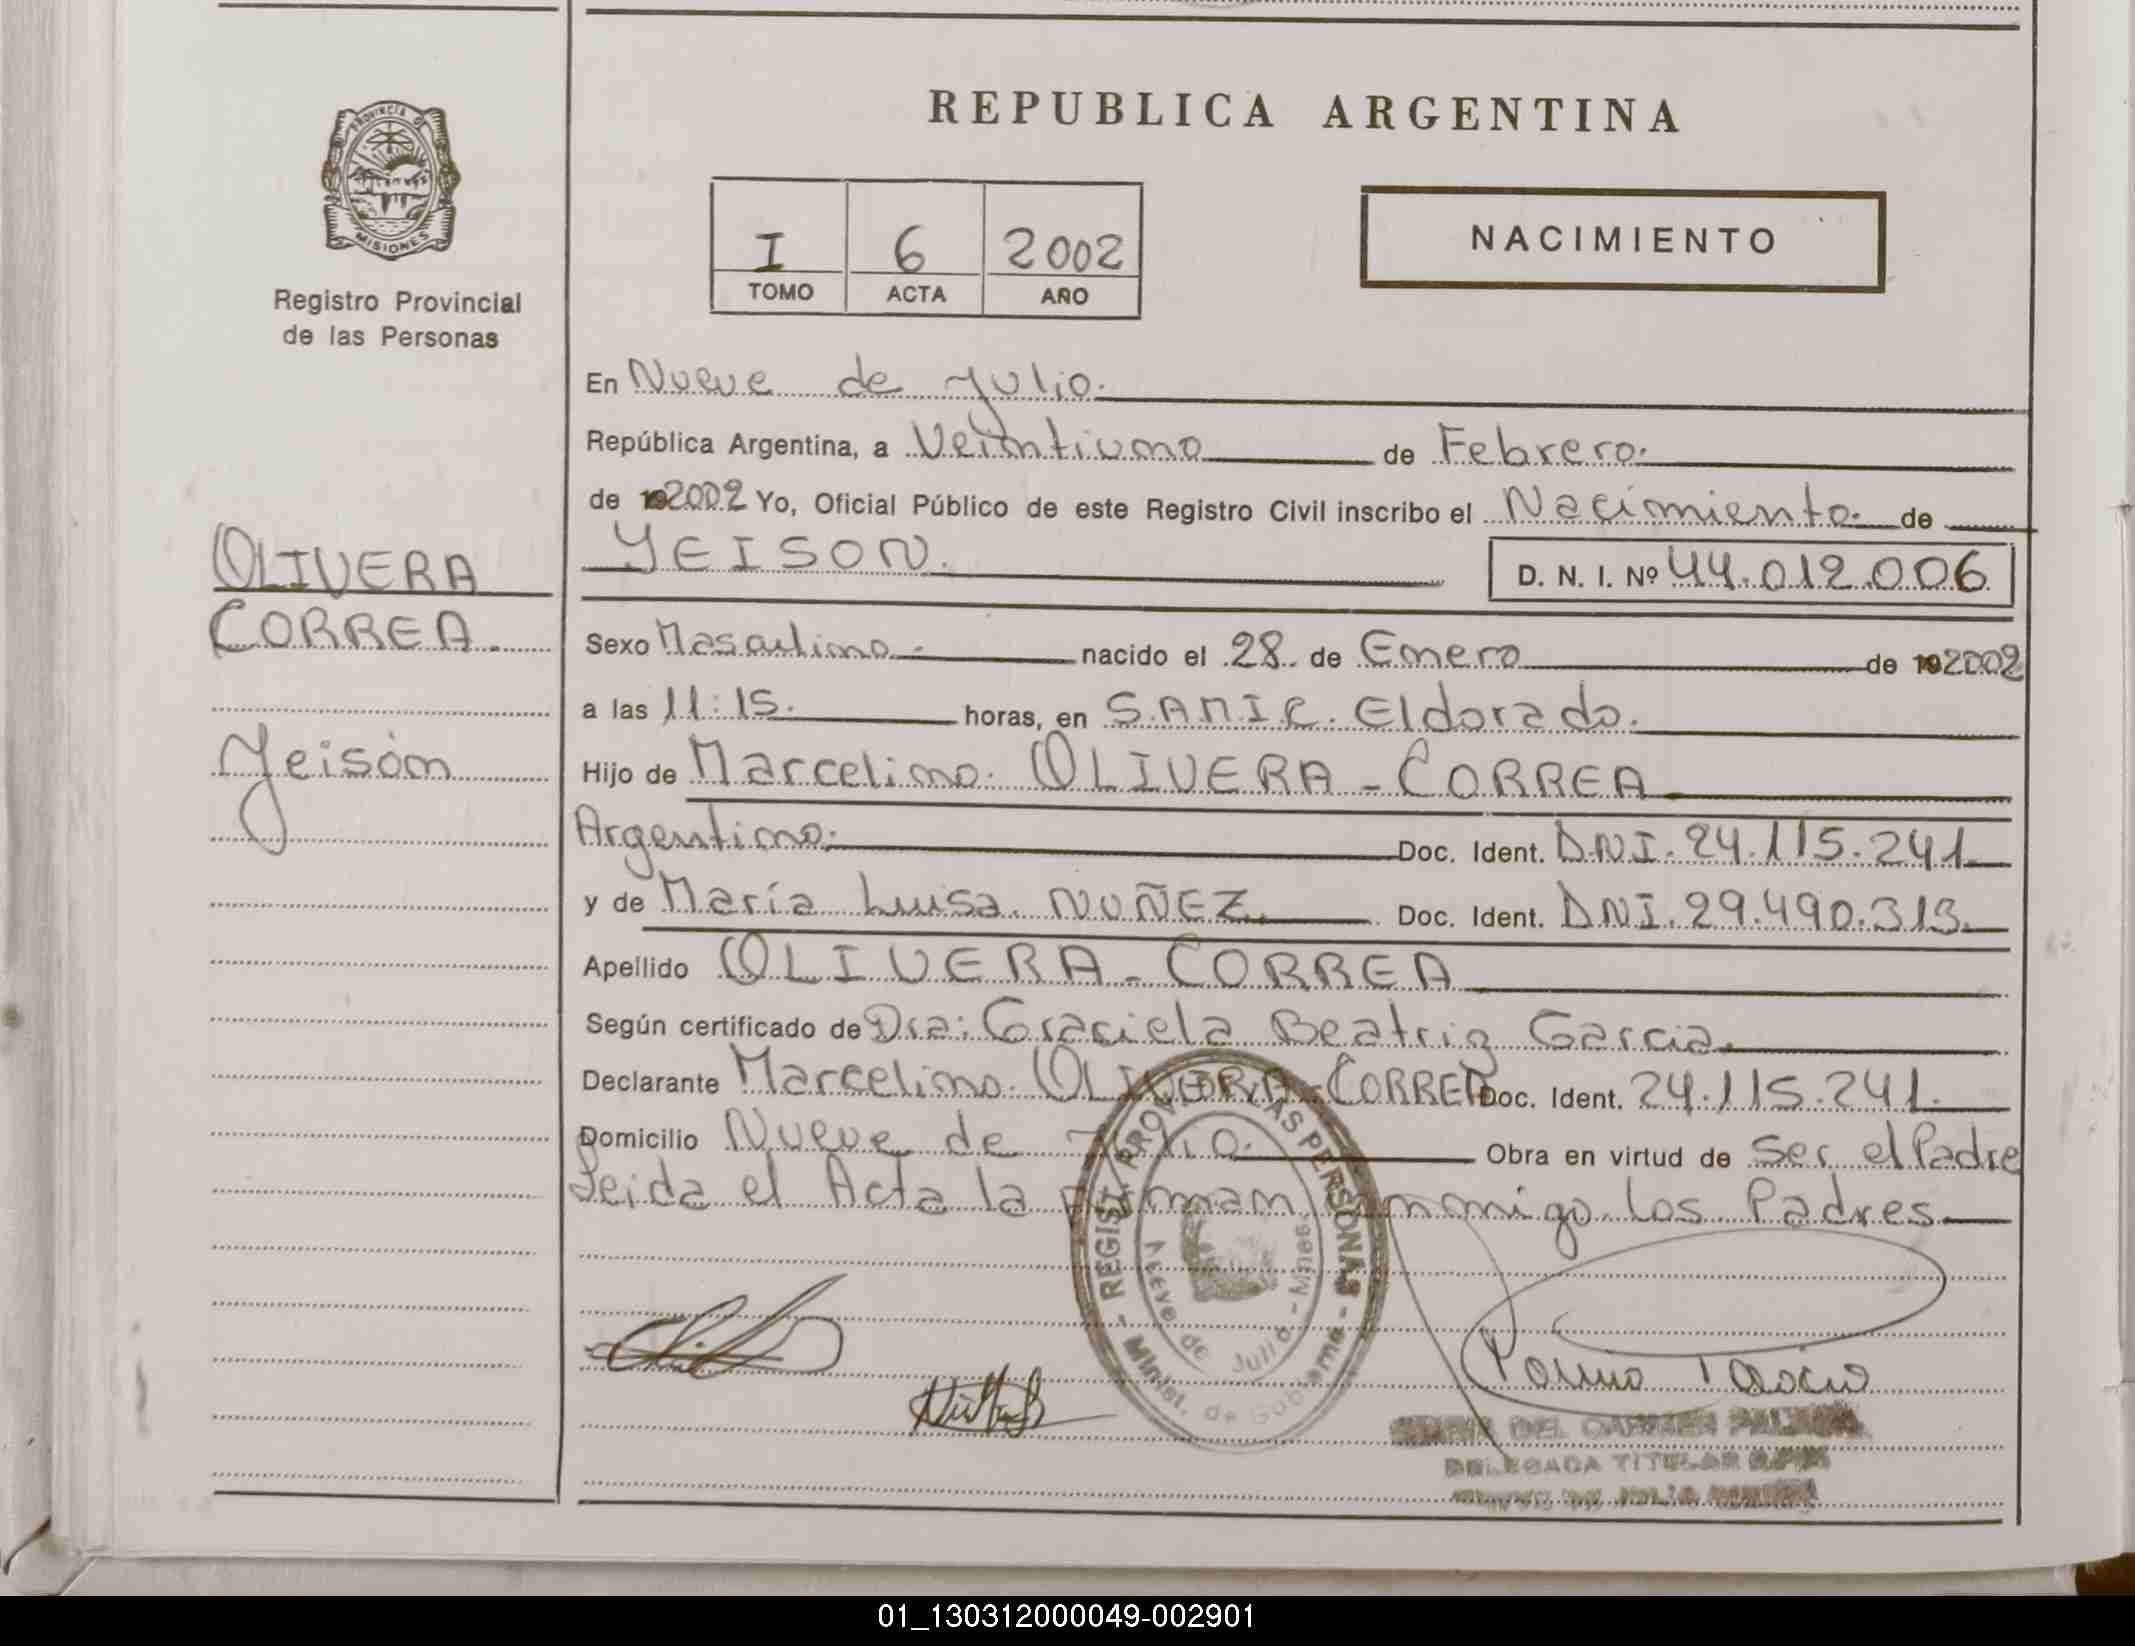 REPUBLICA ARGENTINA
PROVINCIA DE
MISIONES
Registro Provincial
de las Personas
I 6 2002
TOMO ACTA AÑO
NACIMIENTO
OLIVERA
CORREA.
Yeison
En Nueve de Julio.
República Argentina, a Veintiuno de Febrero.
de 192002 Yo, Oficial Público de este Registro Civil inscribo el Nacimiento. de
YEISON. D. N. I. Nº 44.012.006
Sexo Masculino. nacido el 28. de Enero de 192002
a las 11:15. horas, en S.A.M.I.C. Eldorado.
Hijo de Marcelino. OLIVERA - CORREA
Argentino. Doc. Ident. DNI. 24.115.241.
y de María Luisa. NUÑEZ. Doc. Ident. DNI. 29.490.313.
Apellido OLIVERA - CORREA
Según certificado de Dra: Graciela Beatriz Garcia.
Declarante Marcelino. OLIVERA - CORREA Doc. Ident. 24.115.241.
Domicilio Nueve de Julio. Obra en virtud de Ser el Padre
Leida el Acta la firman conmigo los Padres
REGIST. PROV. DE LAS PERSONAS
Nueve de Julio - Mnes.
- Minist. de Gobierno -
DEL CARMEN
DELEGADA TITULAR
NUEVE DE JULIO
01_130312000049-002901